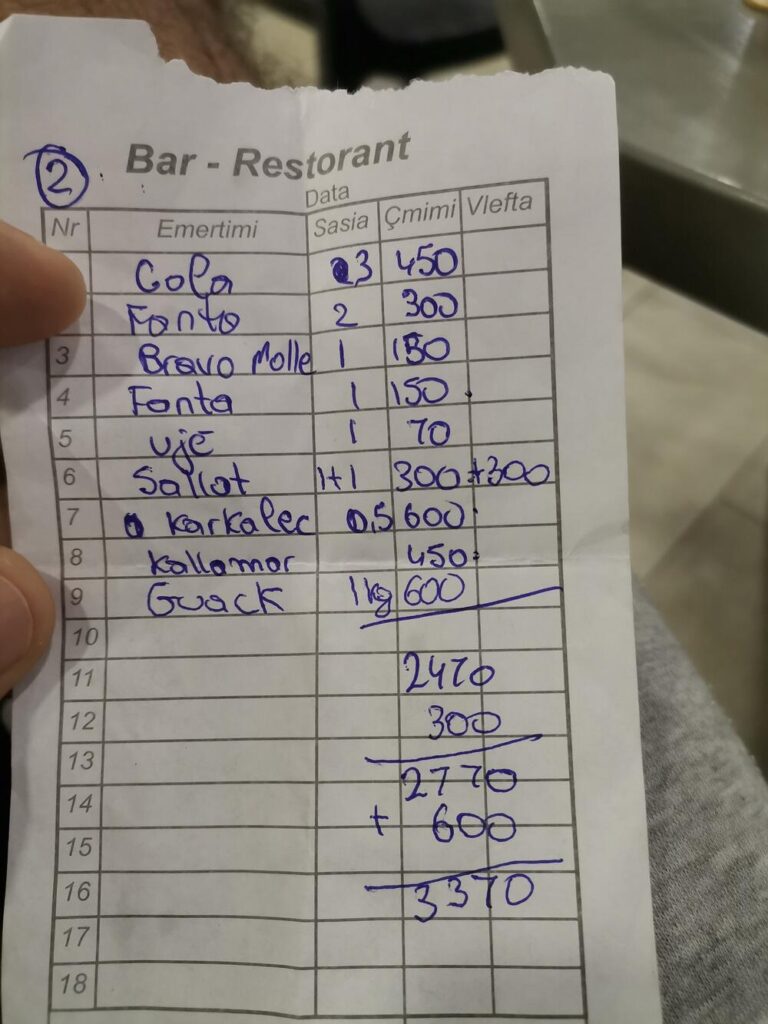 2 Bar - Restorant
Data
Nr Emertimi Sasia Çmimi Vlefta
Cola 3 450
Fanta 2 300
3 Bravo Molle 1 150
4 Fanta 1 150
5 ujë 1 70
6 Sallat 1+1 300+300
7 karkalec 0.5 600
8 kallamar 450
9 Guack 1kg 600
10
11 2470
12 300
13 2770
14 + 600
15
16 3370
17
18